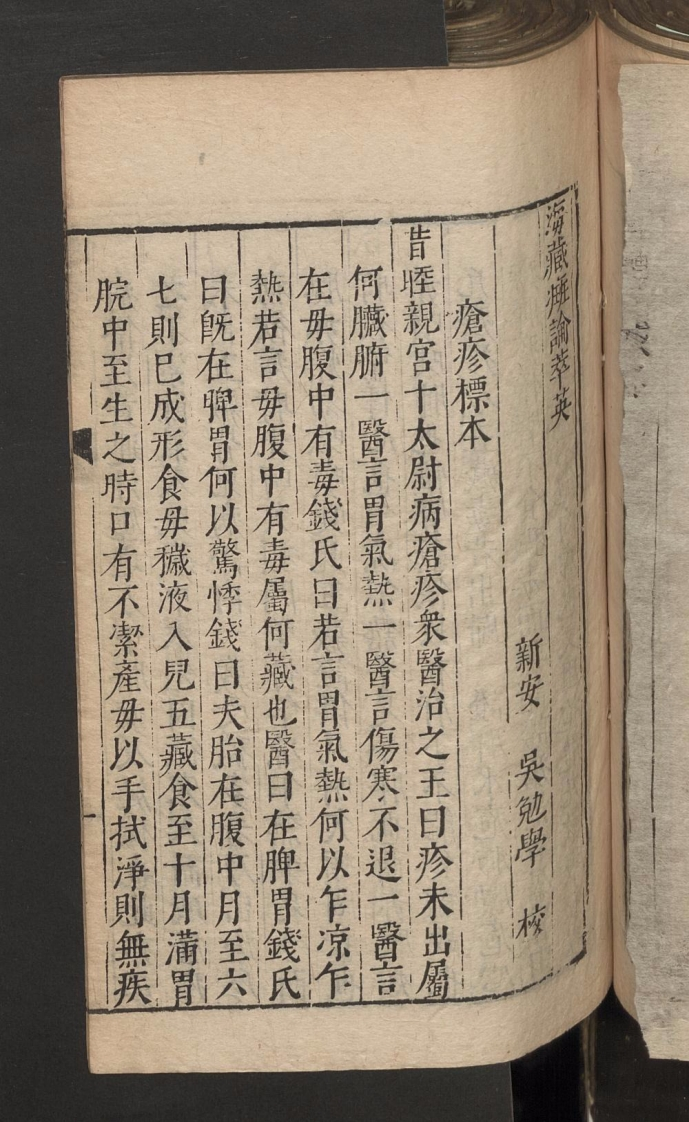 海藏癍論萃英
新安 吳勉學 校
瘡疹標本
昔睦親宮十太尉病瘡疹衆醫治之王曰疹未出屬
何臟腑一醫言胃氣熱一醫言傷寒不退一醫言
在毋腹中有毒錢氏曰若言胃氣熱何以乍凉乍
熱若言毋腹中有毒屬何藏也醫曰在脾胃錢氏
曰旣在脾胃何以驚悸錢曰夫胎在腹中月至六
七則已成形食毋穢液入兒五藏食至十月滿胃
脘中至生之時口有不潔產毋以手拭淨則無疾